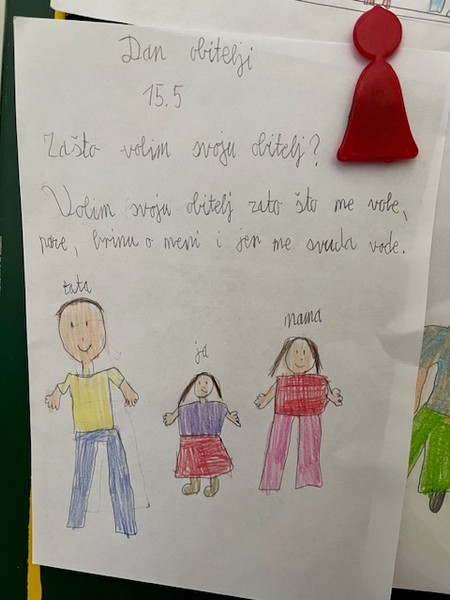 Dan obitelji
15.5
Zašto volim svoju obitelj?
Volim svoju obitelj zato što me vole,
paze, brinu o meni i jer me svuda vode.
tata
ja
mama